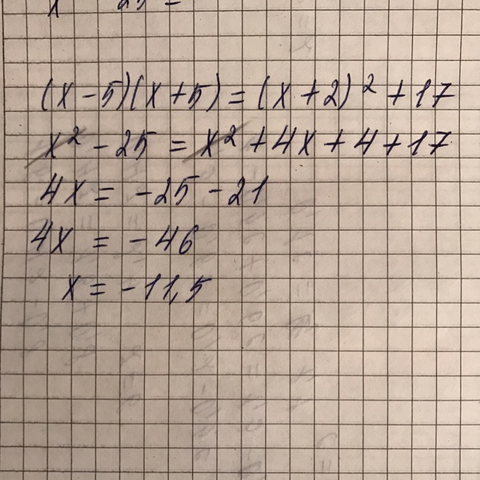 (x-5)(x+5)=(x+2)²+17
x²-25=x²+4x+4+17
4x=-25-21
4x=-46
x=-11,5